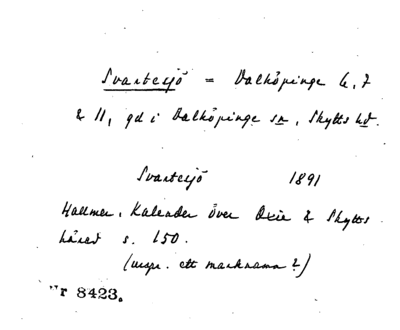 Svartesjö = Dalköpinge 6, 7
& 11, gd i Dalköpinge sn, Skytts hd.
Svartesjö 1891
Hallmer, Kalender över Oxie & Skytts
härad s. 150.
(urspr. ett marknamn?)
Nr 8423.